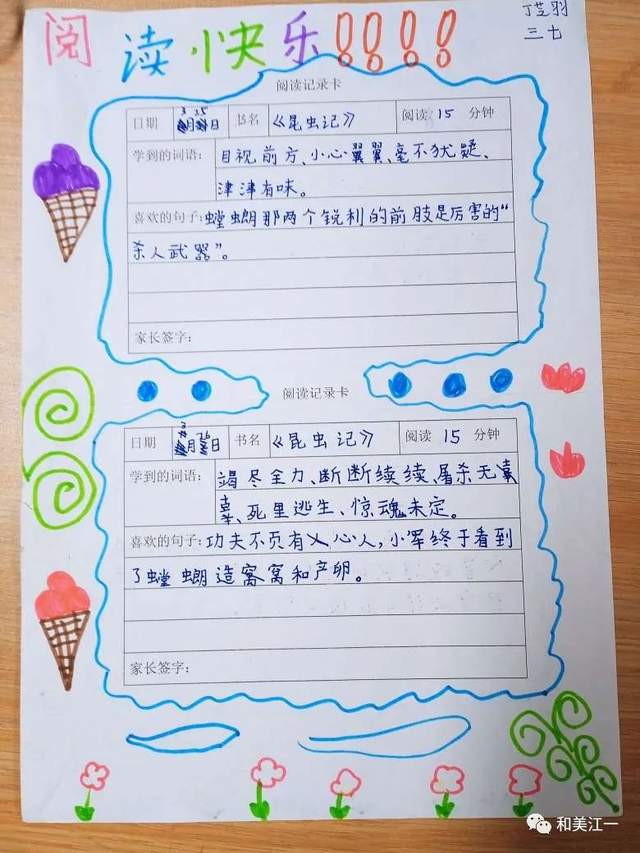 阅读快乐!!!!
丁芝羽
三七
阅读记录卡
日期 3月25日 书名 《昆虫记》 阅读 15 分钟
学到的词语: 目视前方、小心翼翼、毫不犹疑、
津津有味。
喜欢的句子: 螳螂那两个锐利的前肢是厉害的“
杀人武器”。
家长签字:
阅读记录卡
日期 3月26日 书名 《昆虫记》 阅读 15 分钟
学到的词语: 竭尽全力、断断续续、屠杀无辜
、死里逃生、惊魂未定。
喜欢的句子: 功夫不负有心人,小军终于看到
了螳螂造窝和产卵。
家长签字:
和美江一